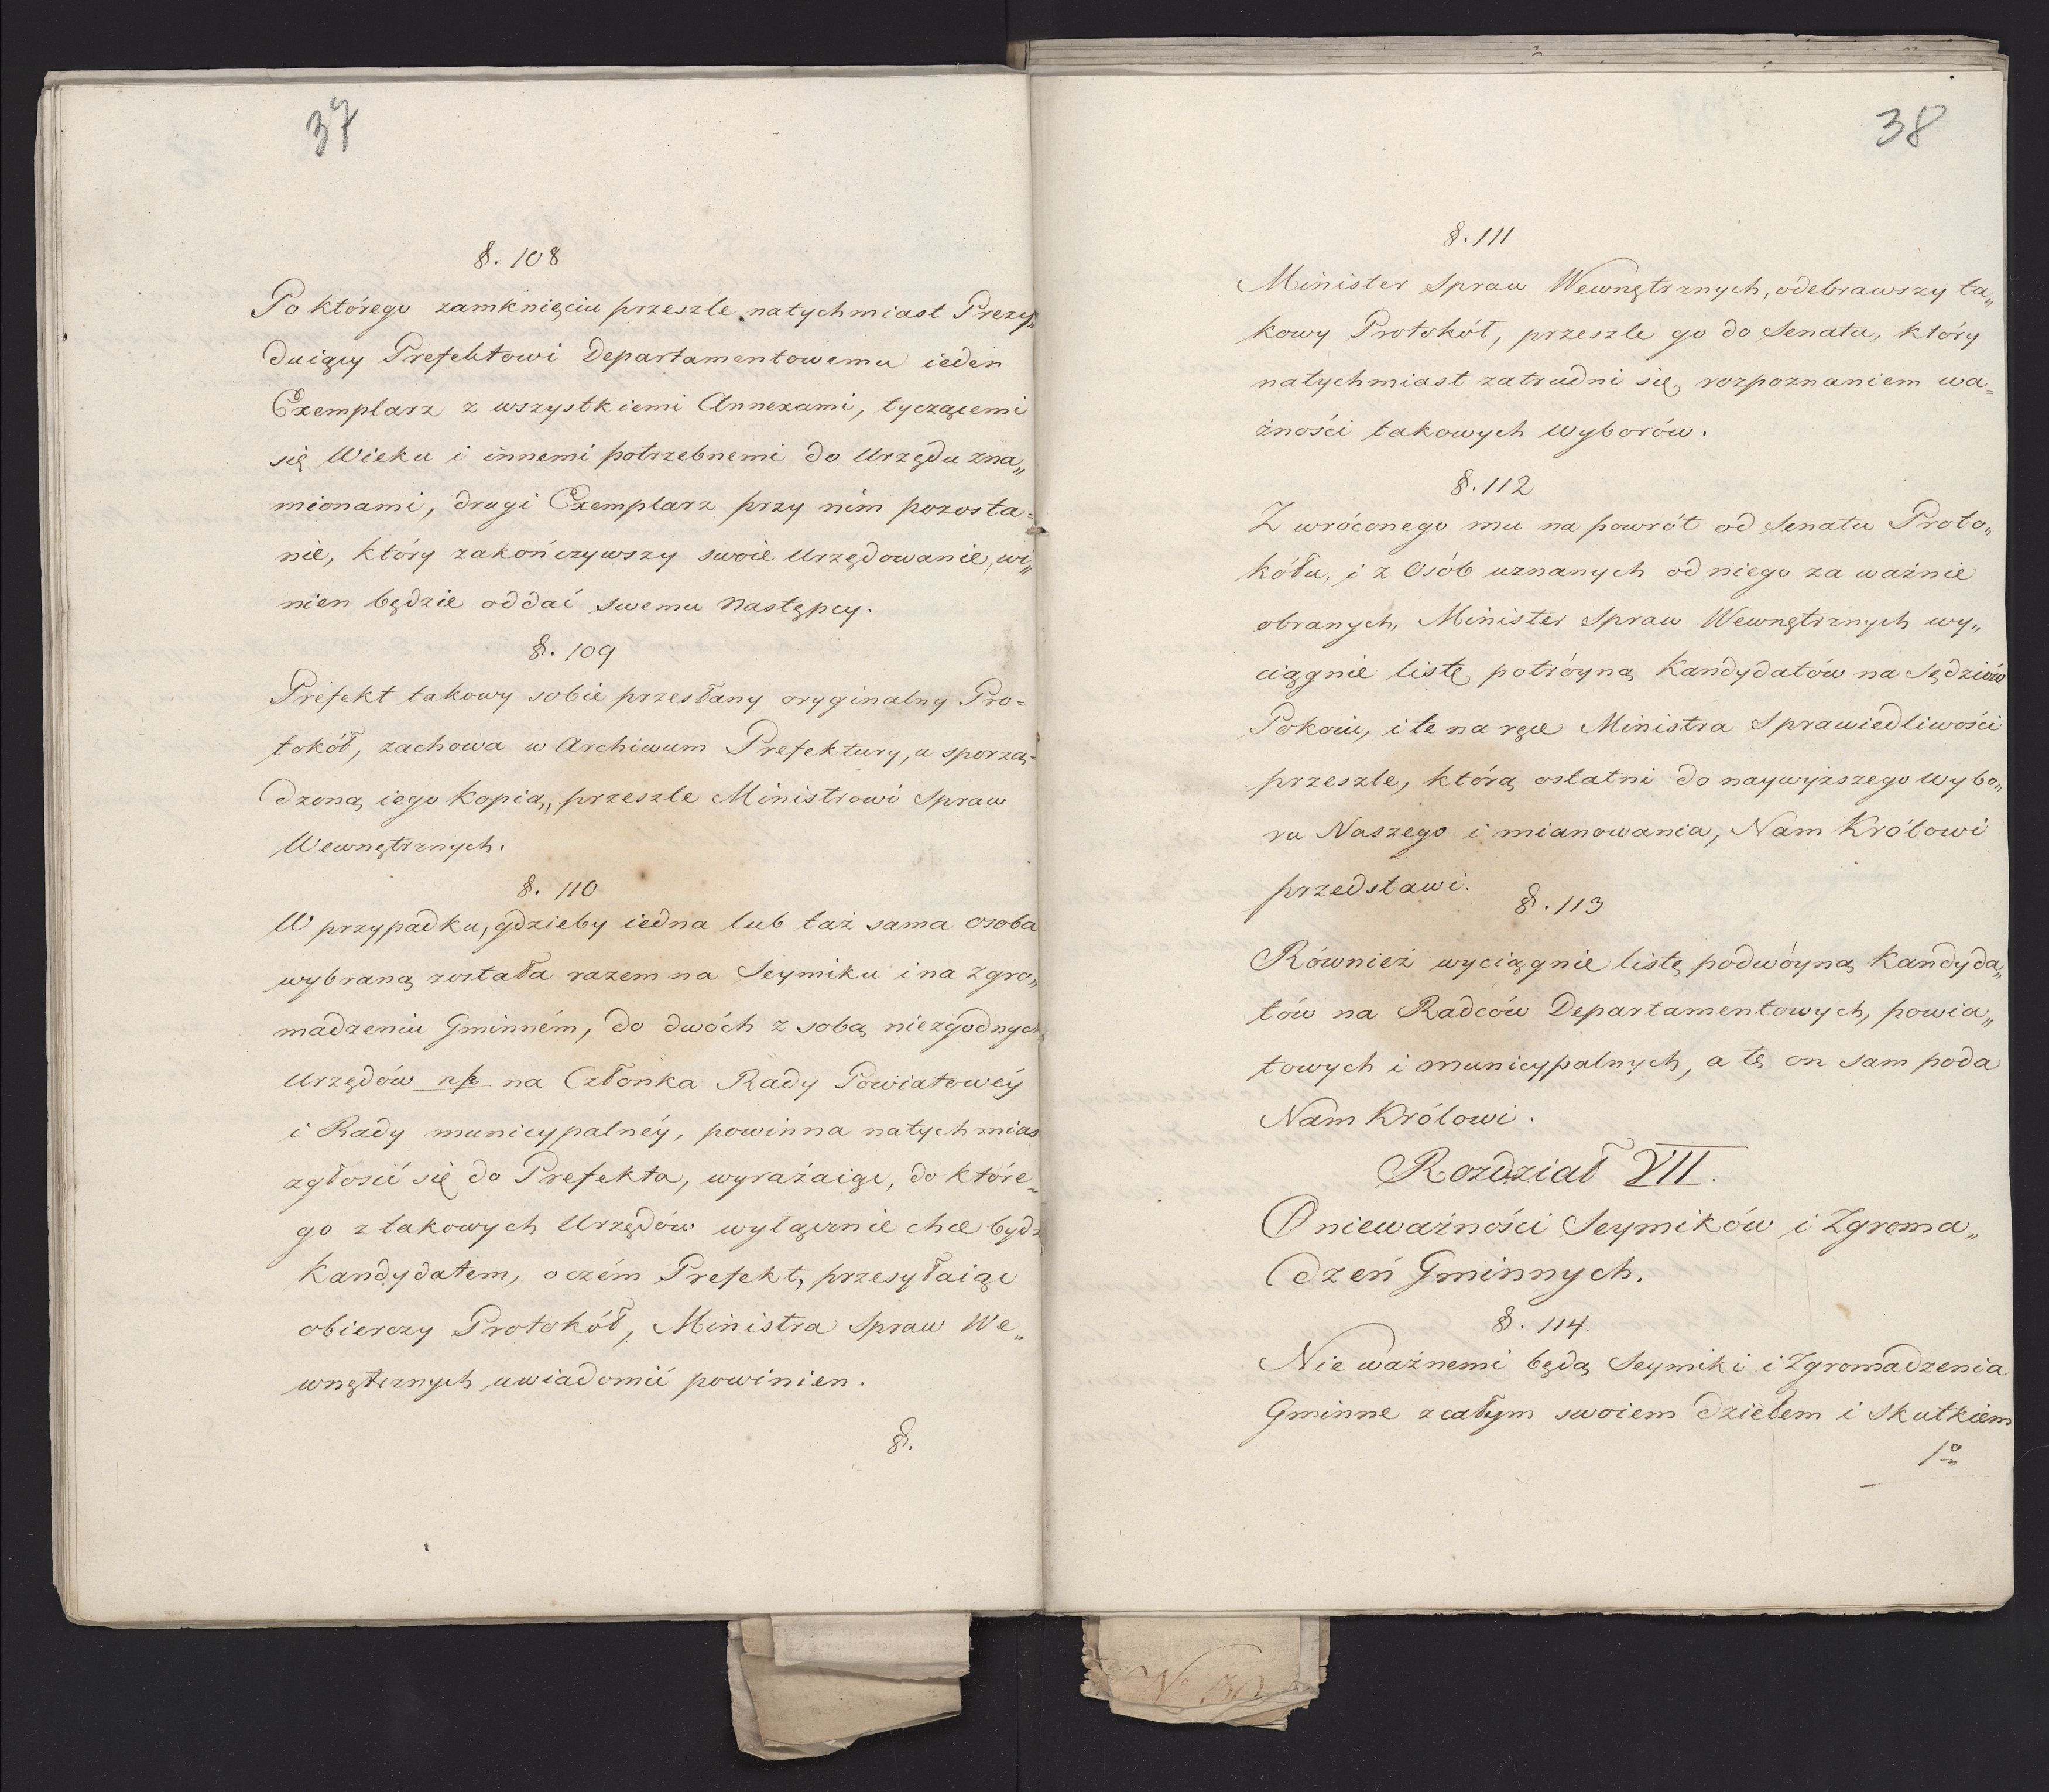 37
§. 108
Po którego zamknięciu przeszle natychmiast Prezy„
duiący Prefektowi Departamentowemu ieden
Exemplarz z wszystkiemi Annexami, tyczącemi
się Wieku i innemi potrzebnemi do Urzędu zna„
mionami, drugi Exemplarz przy nim pozosta=
nie, który zakończywszy swoie Urzędowanie, wi„
nien będzie oddać swemu Następcy.
§. 109
Prefekt takowy sobie przesłany oryginalny Pro=
tokół, zachowa w Archiwum Prefektury, a sporzą=
dzoną iego kopią, przeszle Ministrowi Spraw
Wewnętrznych.
§. 110
W przypadku, gdzieby iedna lub taż sama osoba
wybraną została razem na Seymiku i na zgro„
madzeniu Gminném, do dwóch z sobą niezgodnych
Urzędów np na Członka Rady Powiatowéy
i Rady municypalnéy, powinna natychmias
zgłosić się do Prefekta, wyrażaiąc, do które=
go z takowych Urzędów wyłącznie chce bydź
Kandydatem, o czém Prefekt, przesyłaiąc
obierczy Protokół, Ministra Spraw We„
wnętrznych uwiadomić powinien.
§.
38
§. 111
Minister Spraw Wewnętrznych, odebrawszy ta„
kowy Protokół, przeszle go do Senatu, który
natychmiast zatrudni się rozpoznaniem wa=
żności takowych Wyborów.
§. 112
Z wróconego mu na powrót od Senatu Proto„
kółu, i z Osób uznanych od niego za ważnie
obranych, Minister Spraw Wewnętrznych wy„
ciągnie listę potróyną Kandydatów na Sędziów
Pokoiu, i te na ręce Ministra Sprawiedliwości
przeszle, którą ostatni do naywyższego wybo„
ru Naszego i mianowania, Nam Królowi
przedstawi.
§. 113
Również wyciągnie listę podwóyną Kandyda„
tów na Radców Departamentowych, powia„
towych i municypalnych, a tę on sam poda
Nam Królowi.
Rozdział VII.
O nieważności Seymików i Zgroma„
dzeń Gminnych.
§. 114.
Nie ważnemi będą Seymiki i Zgromadzenia
Gminne z całym swoiem dziełem i skutkiem
1o
No